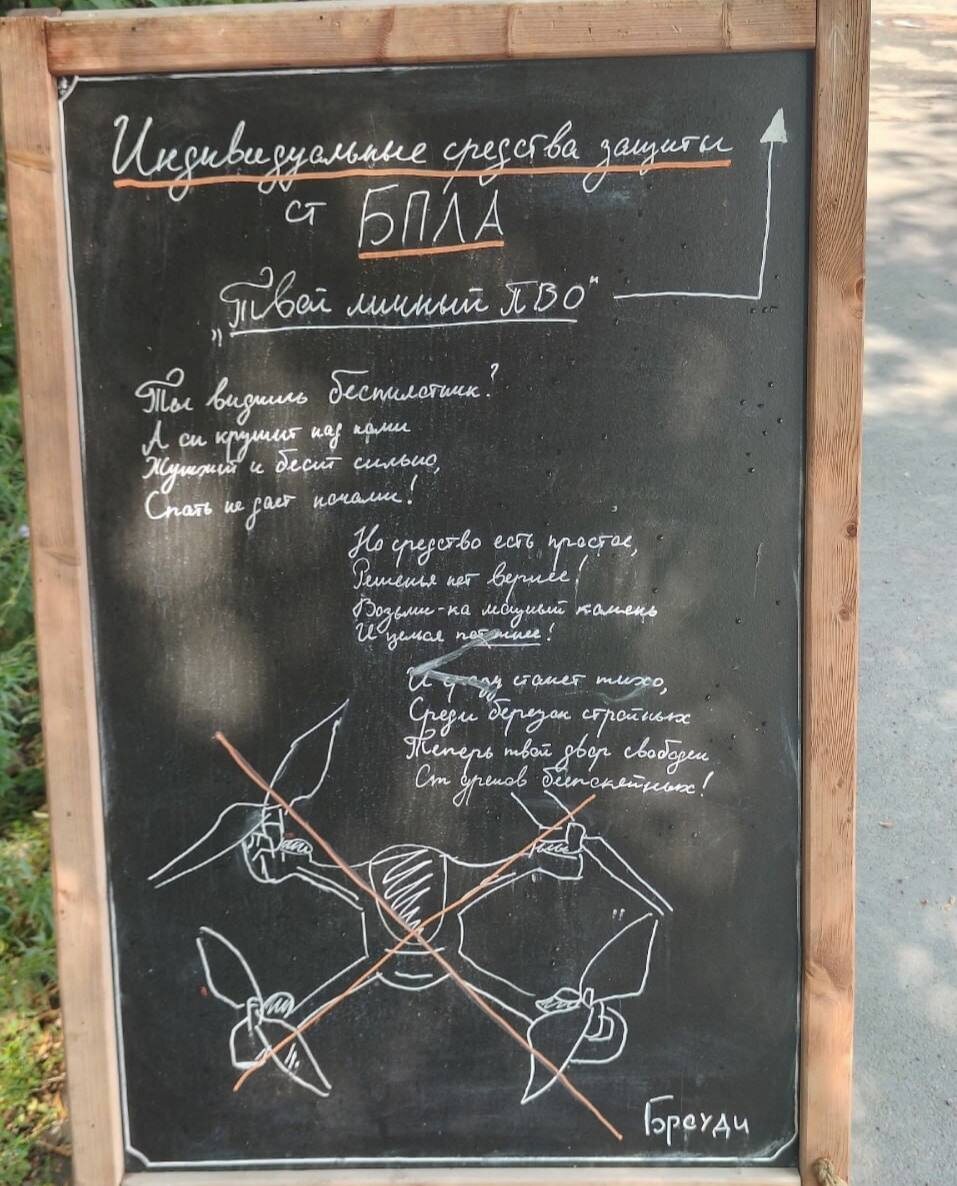 Индивидуальные средства защиты
от БПЛА
„Твой личный ПВО"
Ты видишь беспилотник?
А он кружит над нами
Жужжит и бесит сильно,
Спать не дает ночами!
Но средство есть простое,
Решенья нет вернее!
Возьми-ка мощный камень
И целься
И сразу станет тихо,
Среди березок стройных
Теперь твой двор свободен
От дронов беспокойных!
Брауди